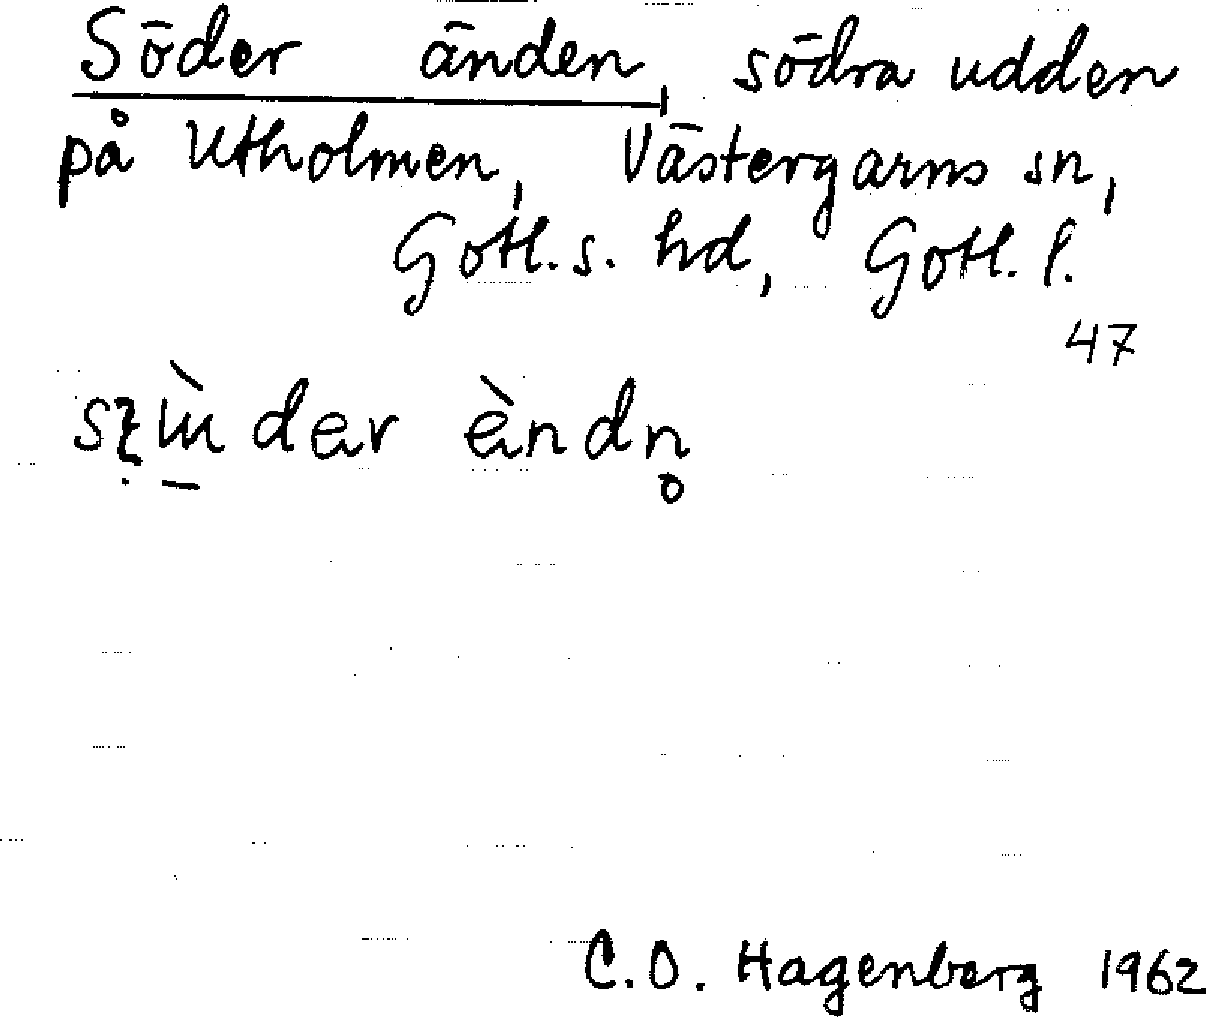 Söder änden, södra udden
på Utholmen, Västergarns sn,
Gotl. s. hd, Gotl. l.
47
èndn̥
C.O. Hagenberg 1962